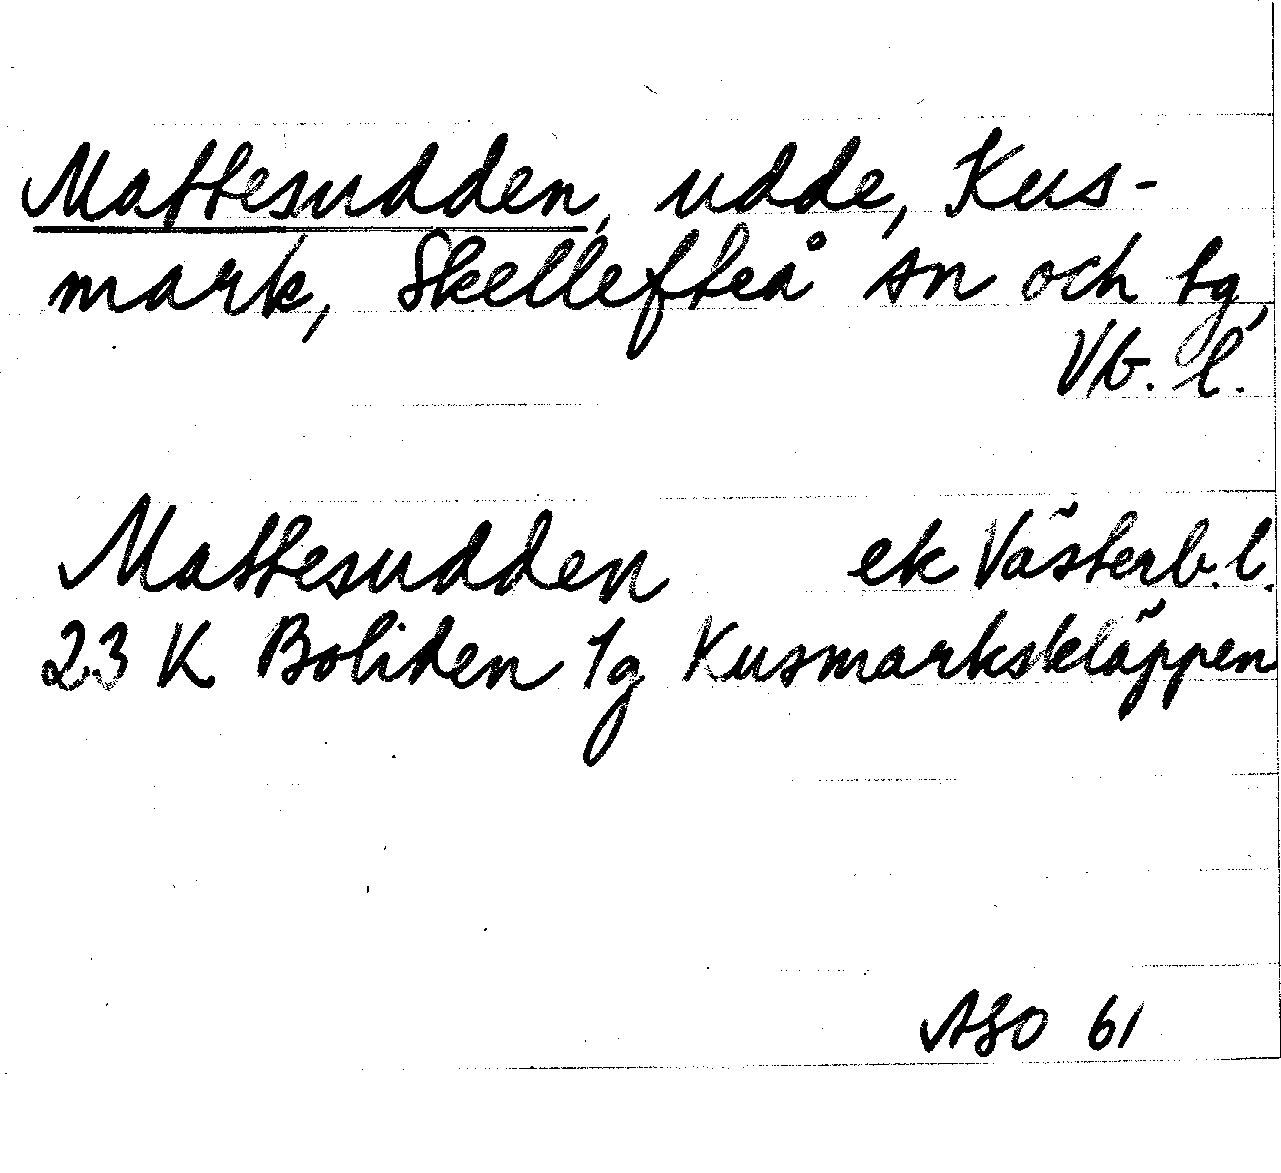 Mattesudden, udde, Kus-
mark, Skellefteå sn och tg,
Vb. l.
Mattesudden ek Västerb. l.
23 K Boliden 1g Kusmarkskläppen
ASO 61